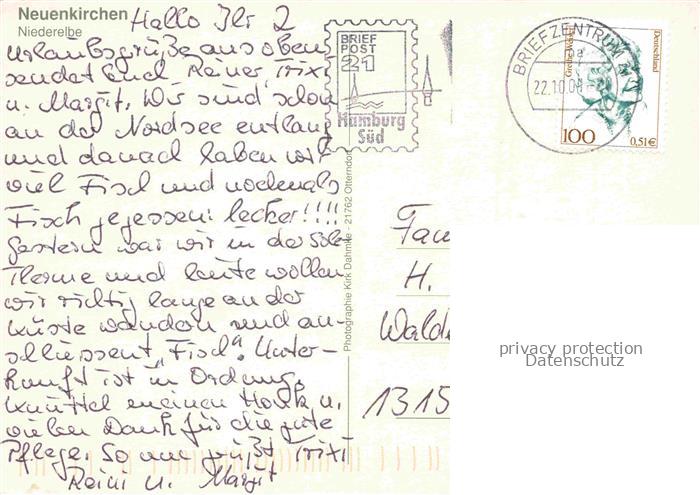 Neuenkirchen
Niederelbe
Hallo Ihr 2
Urlaubsgrüße aus oben
sendet Euch Reiner Trixi
u. Margit. Wir sind schon
an der Nordsee entlang
und danach haben wir
viel Fisch und nochmals
Fisch gegessen: lecker!!!!
Gestern war wir in der Sole
Therme und heute wollen
wir richtig lange an der
Küste wandern und an-
schliessent "Fisch". Unter-
kunft ist in Ordnung.
meinen u.
vielen Dank für die gute
Pflege. So nun grüßt Trixi
Reini u. Margit
Photographie Kirk Dahmke - 21762 Otterndorf
BRIEF
POST
21
Hamburg
Süd
BRIEFZENTRUM
22.10.0
Deutschland
100
0,51€
Fam
H.
Wald
1315
privacy protection
Datenschutz